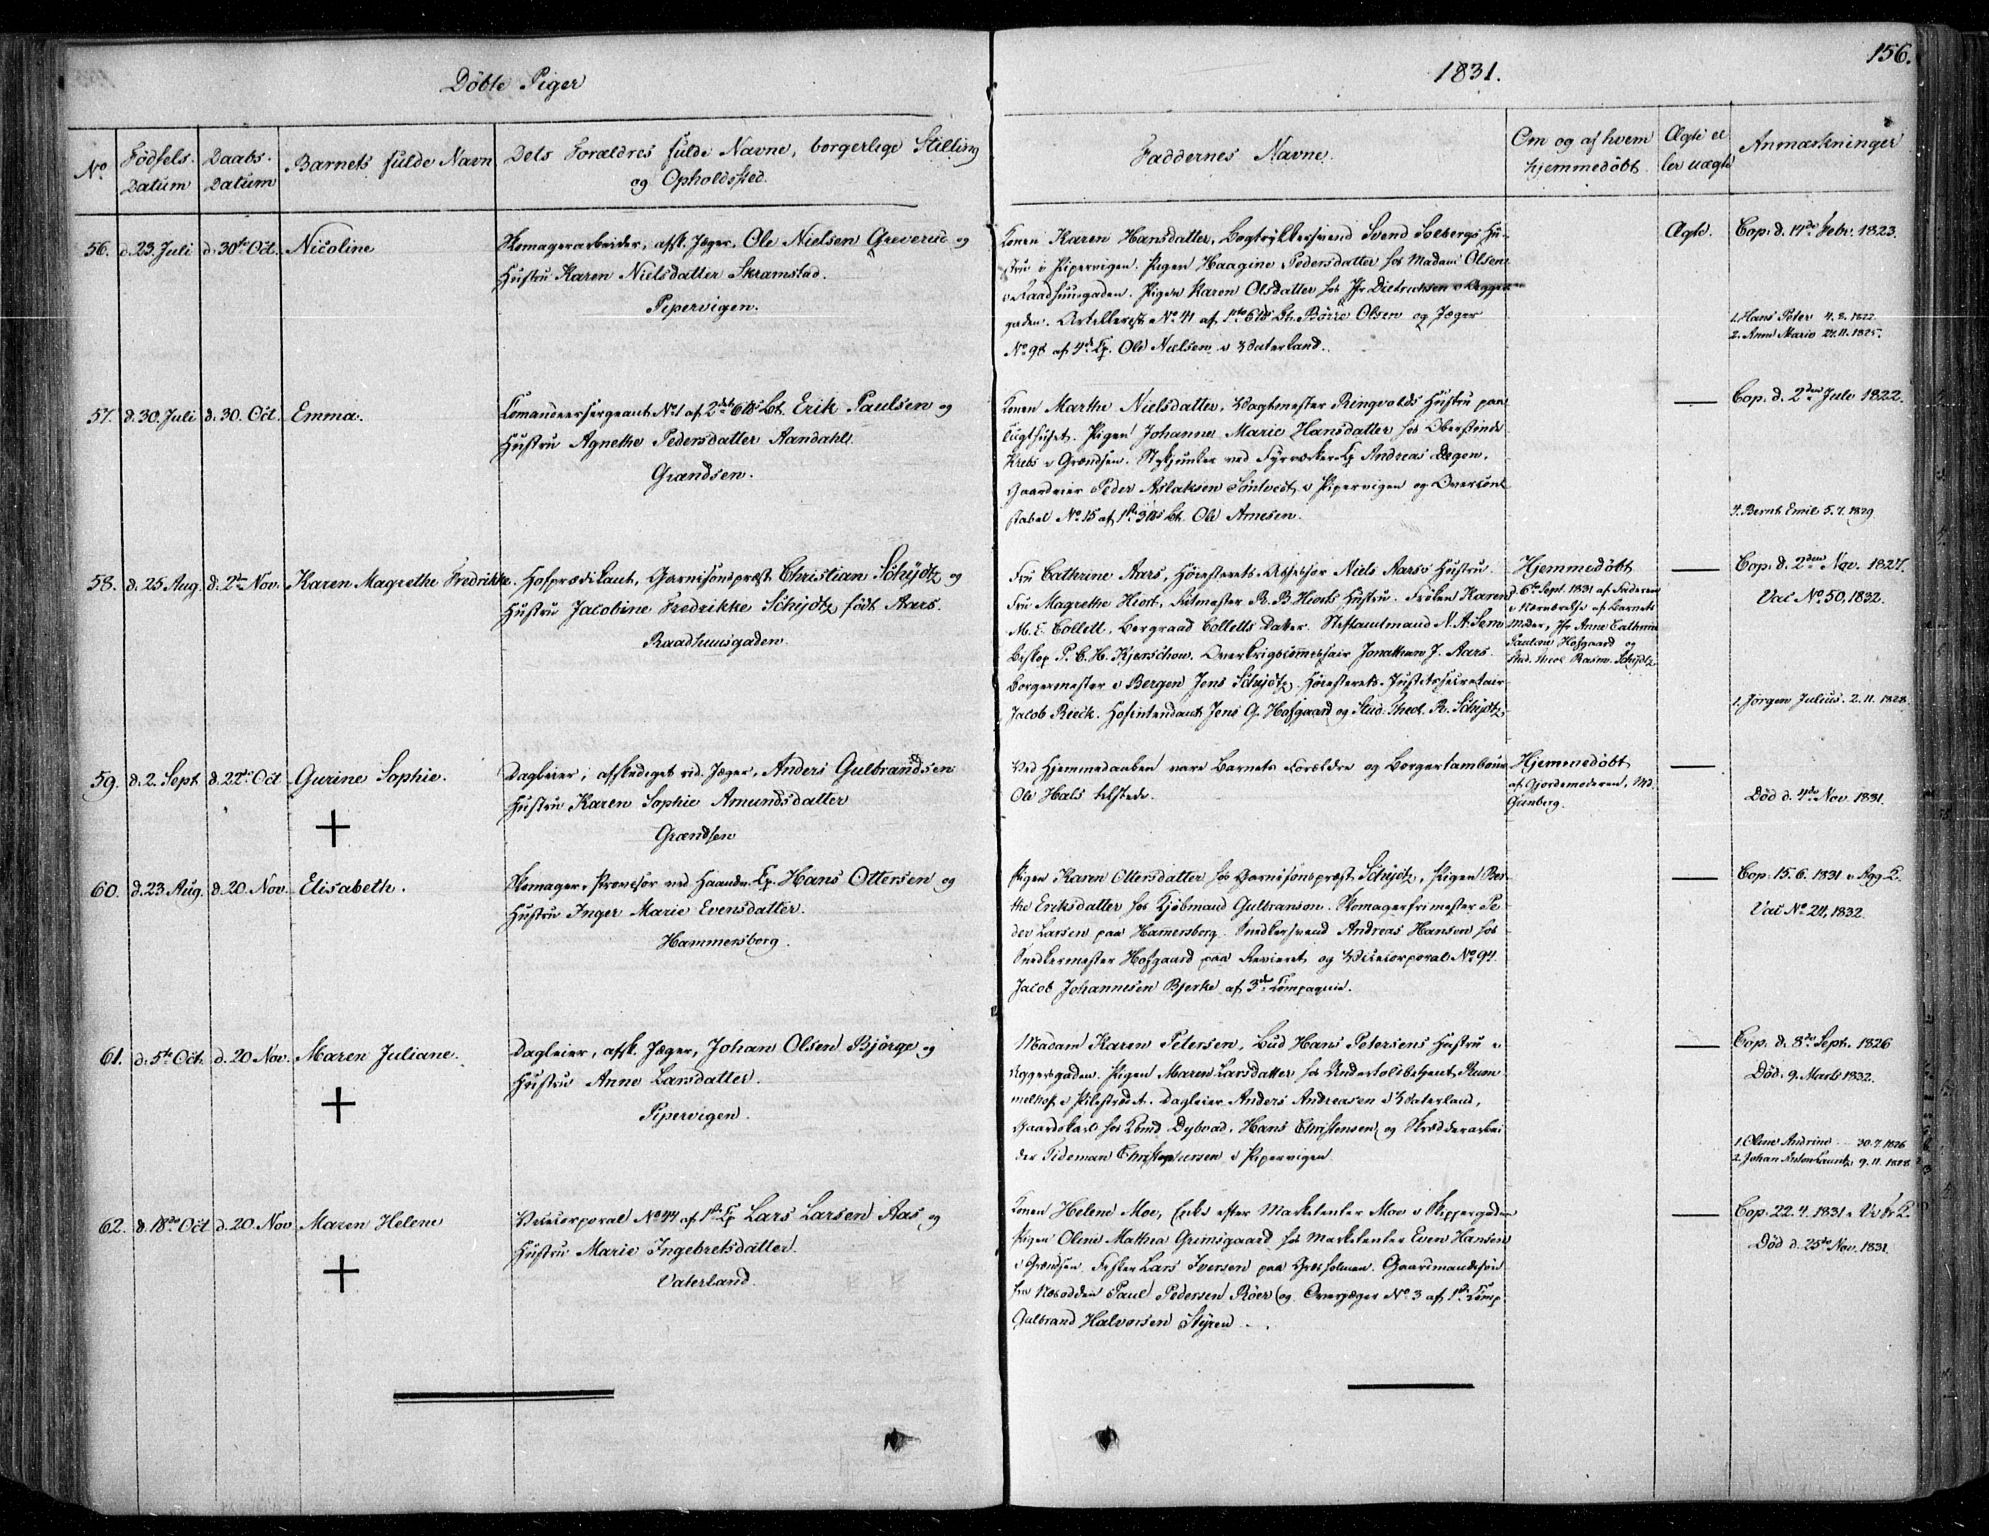 156.
Döbte Piger
1831.
No
Födsels-
Datum
Daabs-
Datum
Barnets fulde Navn
Dets Forældres fulde Navne, borgerlige Stilling
og Opholdssted.
Faddernes Navne.
Om og af hvem
hjemmedöbt
Ægte el
ler uægte
Anmærkninger
56. d. 23. Juli d. 30te Oct. Nicoline
Skomagerarbeider, afsk. Jæger, Ole Nielsen Greverud og
Hustru Karen Nielsdatter Skramstad.
Pipervigen.
Konen Karen Hansdatter, Bogtrykkersvend Svend Solbergs Hu-
stru i Pipervigen. Pigen Haagine Pedersdatter hos Madam Olsen
i Raadhuusgaden. Pigen Karen Olsdatter hos Hr Dietrichsen i Agger
gaden. Artillerist No 41 af 1ste 6℔s Bt. Börre Olsen og Jæger
No 98 af 4de Cp. Ole Nielsen i Vaterland.
Ægte.
Cop. d. 14de Febr. 1823.
1. Hans Peter 4. 8. 1822.
2. Anne Marie 24. 11. 1825.
57. d. 30. Juli d. 30. Oct. Emma.
Comandeersergeant No 1 af 2det 6℔s Bt. Erik Paulsen og
Hustru Agnethe Pedersdatter Aandahl.
Grændsen.
Konen Marthe Nielsdatter, Vagtmester Ringvolds Hustru paa
Tugthuset. Pigen Johanne Marie Hansdatter hos Oberstinde
Krebs i Grændsen. Stykjunker ved Fyrværker Cp Andreas Dægen.
Gaardeier Peder Aslaksen Sönlvedt i Pipervigen og Overcon-
stabel No 15 af 1ste 3℔s Bt. Ole Arnesen.
Cop. d. 2den Juli 1822.
4. Bernt Emil 5. 7. 1829.
58. d. 25 Aug. d. 2den Nov. Karen Magrethe Fredrikke.
Hofprædikant, Garnisonspræst Christian Schjötz og
Hustru Jacobine Fredrikke Schjötz födt Aars.
Raadhuusgaden.
Fru Cathrine Aars, Höiesterets Assessor Niels Aars's Hustru.
Fru Magrethe Hiort, Ritmester R. B. Hiorts Hustru. Fröken Karen
M. C. Collett, Bergraad Colletts Datter. Stiftamtmand N. A. Sem
Biskop P. C. H. Kjerschow. Overkrigscommissair Jonathan J. Aars
Borgermester i Bergen Jens Schjötz. Höiesterets-Justitssecretair
Jacob Rieck. Hofintendant Jens G. Hofgaard og Stud. Theol. R. Schjötz.
Hjemmedöbt
d. 6te Sept. 1831 af Faderen
i Nærværelse af Barnets
Moder, Jfr Anne Cathrine
Pauline Hofgaard og
Stud. theol Rasm. Schjötz
Cop. d. 2den Nov. 1827.
Vac No 50, 1832.
1. Jörgen Julius. 2. 11. 1828.
59. d. 2. Sept d. 22de Oct Gurine Sophie.
Dagleier, afskediget rid. Jæger, Anders Gulbrandsen
Hustru Karen Sophie Amundsdatter
Grændsen
Ved Hjemmedaaben vare Barnets Forældre og Borgertambour
Ole Hals tilstede.
Hjemmedöbt
af Gjordemoderen, Md.
Gienberg.
Död d. 4de Nov. 1831.
60. d. 23 Aug. d. 20 Nov. Elisabeth.
Skomager, Provisor ved Haandv. Cp. Hans Ottersen og
Hustru Inger Marie Evensdatter.
Hammersborg.
Pigen Karen Ottersdatter hos Garnisonspræst Schjötz, Pigen Ber-
the Eriksdatter hos Kjöbmand Gulbranson. Skomagerfrimester Pe-
der Larsen paa Hamersborg. Snedkersvend Andreas Hanson hos
Snedkermester Hofgaard paa Revieret og Vicecorporal No 94
Jacob Johannesen Bjerke af 3die Compagnie.
Cop. 15. 6. 1831 i Agg. K.
Vac No 24, 1832.
61. d. 5te Oct. d. 20 Nov. Maren Juliane.
Dagleier, afsk. Jæger, Johan Olsen Björge og
Hustru Anne Larsdatter.
Pipervigen.
Madam Karen Petersen, Bud Hans Petersens Hustru i
Aggersgaden. Pigen Maren Larsdatter hos Undertoldbetjent Rum-
melhof i Pilestrædet. Dagleier Anders Andreasen i Vaterland,
Gaardskarl hos Kbmd Dybvad, Hans Christensen og Skrædderarbei
der Tideman Christophersen i Pipervigen
Cop. d. 8de Sept. 1826
Död. 9. Marts 1832.
1. Oline Andrine 30. 7. 1826
2. Johan Anton Lauritz 9. 11. 1828
62. d. 18de Oct d. 20 Nov Maren Helene
Vicecorporal No 44 af 1ste Cp Lars Larsen Aas og
Hustru Marie Ingebretsdatter.
Vaterland.
Konen Helene Moe, Enke efter Marketenter Moe i Skippergaden
Pigen Oline Mathea Grimsgaard hos Marketenter Even Hansen
i Grændsen. Fisker Lars Iversen paa Græsholmen. Gaardmandssön
fra Næsodden Paul Pedersen Röer og Overjæger No 3 af 1ste Comp.
Gulbrand Halvorsen Styren.
Cop. 22. 4. 1831 i Vor Fr K.
Död d. 25de Nov. 1831.